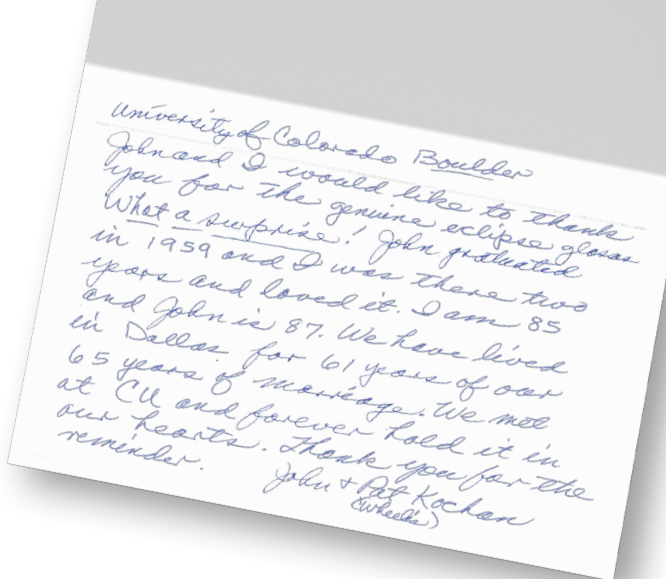 University of Colorado Boulder
John and I would like to thank
you for the genuine eclipse glasses
What a surprise! John graduated
in 1959 and I was there two
years and loved it. I am 85
and John is 87. We have lived
in Dallas for 61 years of our
65 years of marriage. We met
at CU and forever hold it in
our hearts. Thank you for the
reminder.
John + Pat Kochan